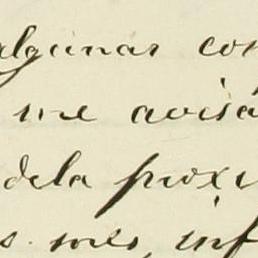 algunas con
me avisa
dela proxi
s mes, inf